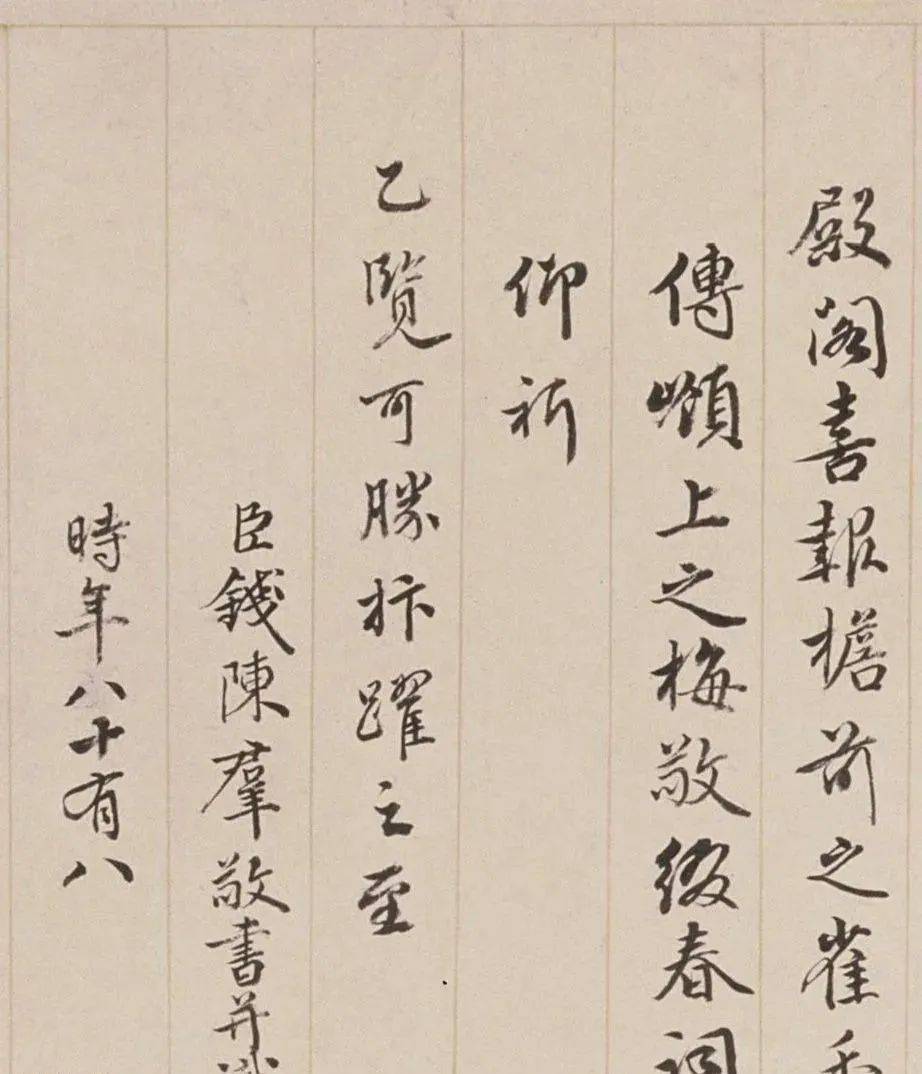 殿閣喜報檐前之雀香
傳頌上之梅敬綴春詞
仰祈
乙覽可勝抃躍之至
臣錢陳羣敬書并識
時年八十有八